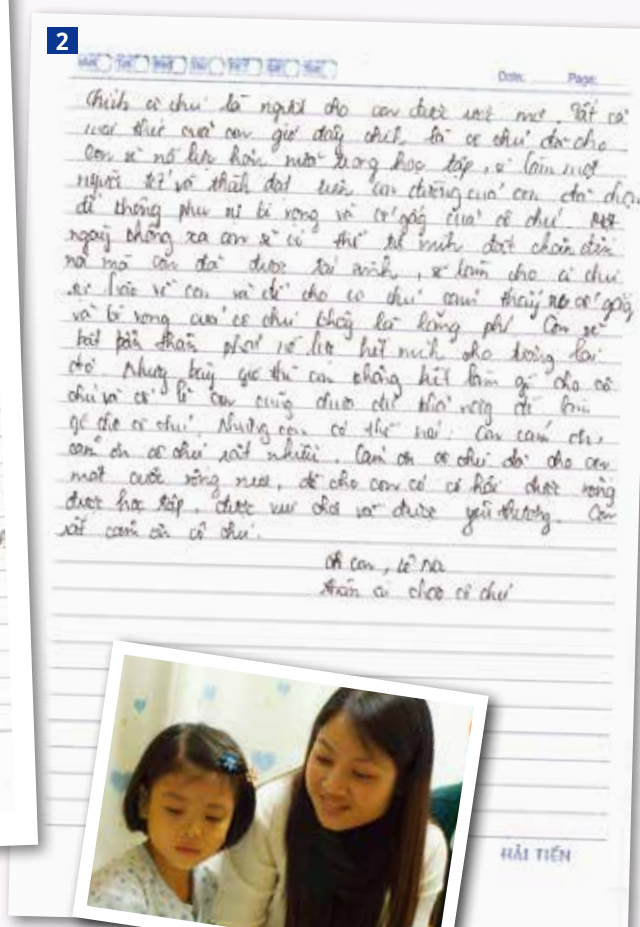 2
Date: Page:
Chính cô chú là người cho con được ước mơ. Tất cả
mọi thứ của con giờ đây chit là cô chú đã cho
Con sẽ nổ lực hơn nữa trong học tập, sẽ làm một
người tốt và thành đạt trên con đường của con đã chọn
để không phụ sự kì vọng và cố gắg của cô chú. Một
ngày không xa con sẽ có thể tự mình đặt chân đến
nơi mà con đã được tái sinh, sẽ làm cho cô chú
tự hào về con và để cho cô chú cảm thấy sự cố gắg
và kì vọng của cô chú khôg là lãng phí Con sẽ
bắt bản thân phải nổ lực hết mình cho tương lai
đó. Nhưng bây giờ thì con không biết làm gì cho cô
chú và có lẽ con cũng chưa đủ khả năng để làm
gì cho cô chú. Nhưng con có thể nói: Con cảm ơn,
cảm ơn cô chú rất nhiều. Cảm ơn cô chú đã cho con
một cuộc sống nữa, để cho con có cơ hội được sống
được học tập, được vui chơi và được yêu thương. Con
rất cảm ơn cô chú.
con, Lê Na
thân ái chào cô chú
HẢI TIẾN